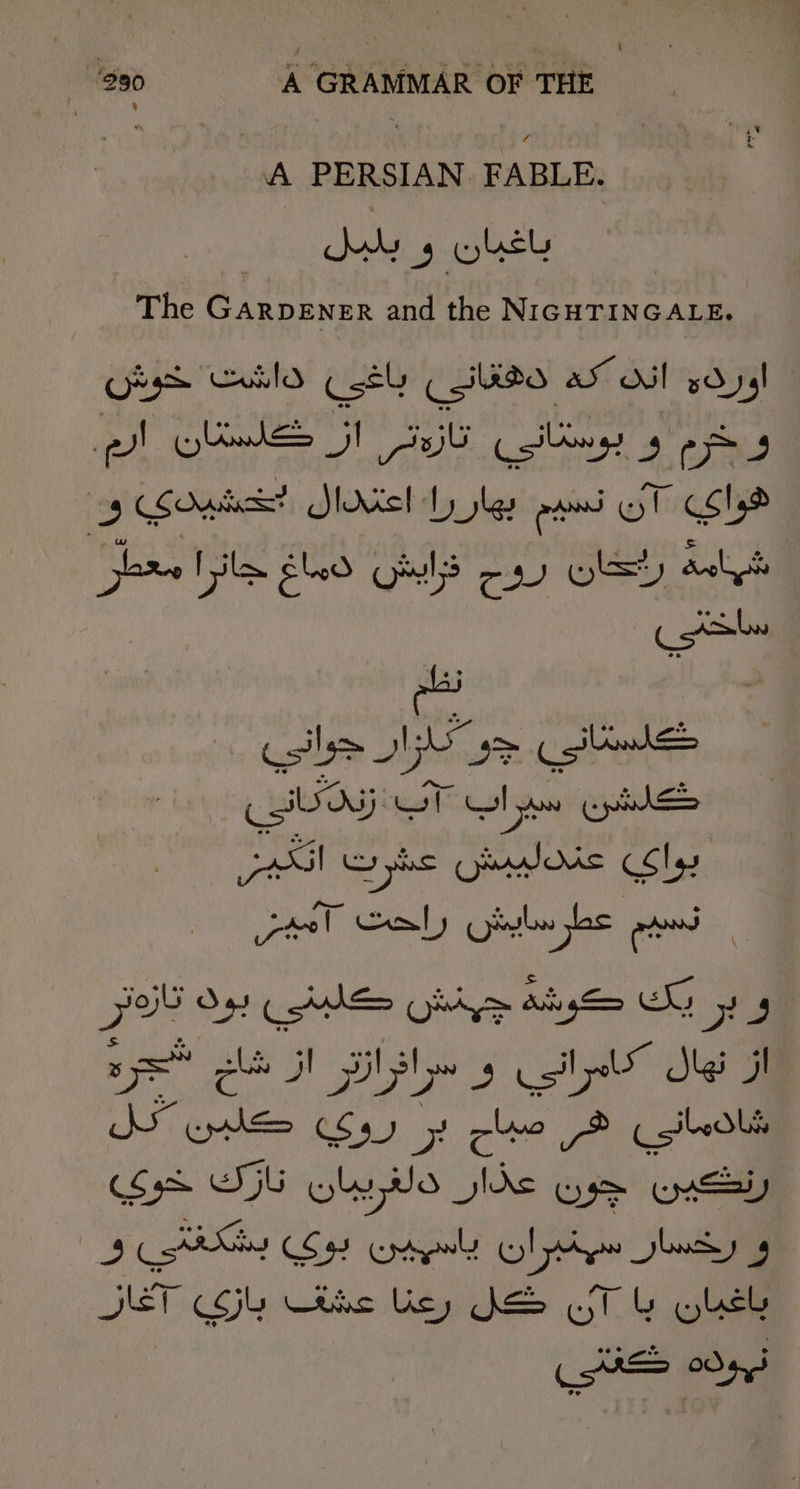 290 A GRAMMAR OF THE
A PERSIAN FABLE.
باغبان و بلبل
The GARDENER and the NIGHTINGALE.
اورده اند که دهقاني باغي داشت خوش
و خرم و بوستاني تازه‌تر از گلستان ارم
هواي آن نسیم بهار را اعتدال بخشیدي و
شمامهٔ ریحان روح فزایش دماغ جانرا معطّر
ساختي
نظم
گلستاني چو گلزار جواني
گلشن سیراب آب زندگاني
نواي عندلیبش عشرت انگیز
نسیم عطرسایش راحت آمیز
و بر یک گوشهٔ چمنش گلبني بود تازه‌تر
از نهال کامراني و سرافرازتر از شاخ شجرهٔ
شادماني هر صباح بر روي گلبن گل
رنگین چون عذار دلفریبان نازک خوي
و رخسار سمنبران یاسمین بوي بشکفتي و
باغبان با آن گل رعنا عشق بازي آغاز
نموده گفتي